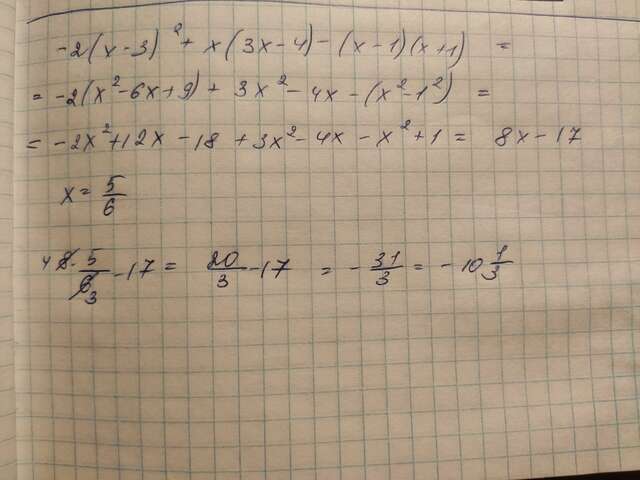 -2(x-3)² + x(3x-4) - (x-1)(x+1) =
= -2(x²-6x+9) + 3x² - 4x - (x²-1²) =
= -2x²+12x - 18 + 3x² - 4x - x² + 1 = 8x - 17
x = 5/6
4 8 · 5/6 3 - 17 = 20/3 - 17 = - 31/3 = - 10 1/3